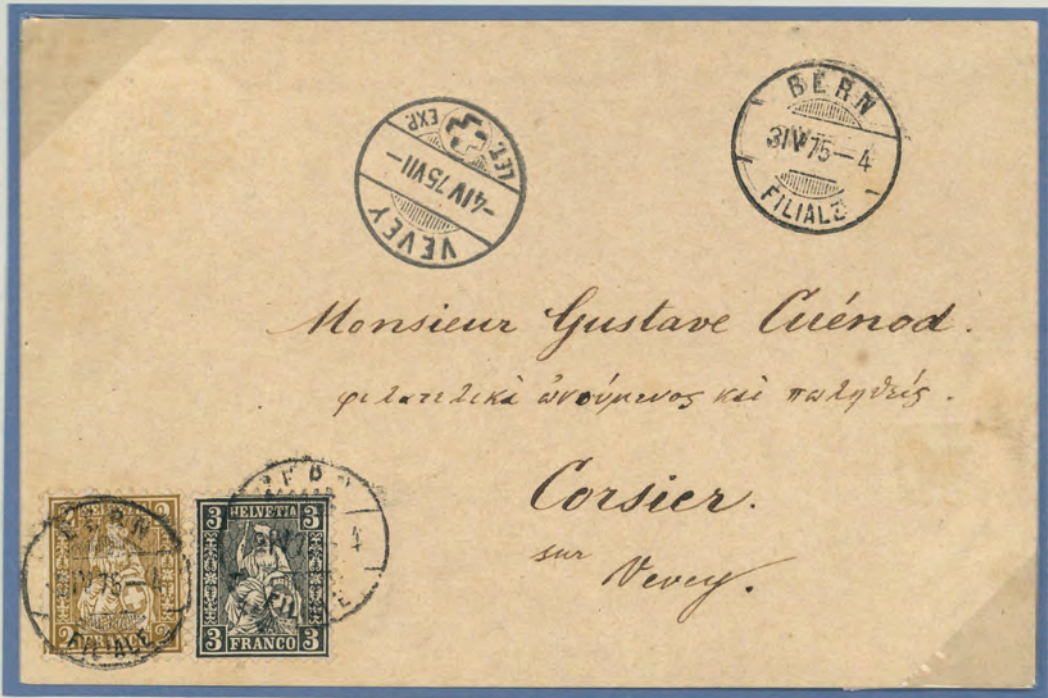 BERN
3IV75—4
FILIALE
LET. EXP.
–4IV75VII–
VEVEY
Monsieur Gustave Cuénod.
φιλατελικὰ ὠνούμενος καὶ πωληθείς.
Corsier.
sur
Vevey.
BERN
IV75—4
FILIALE
2 2
2 FRANCO 2
3 HELVETIA 3
3 FRANCO 3